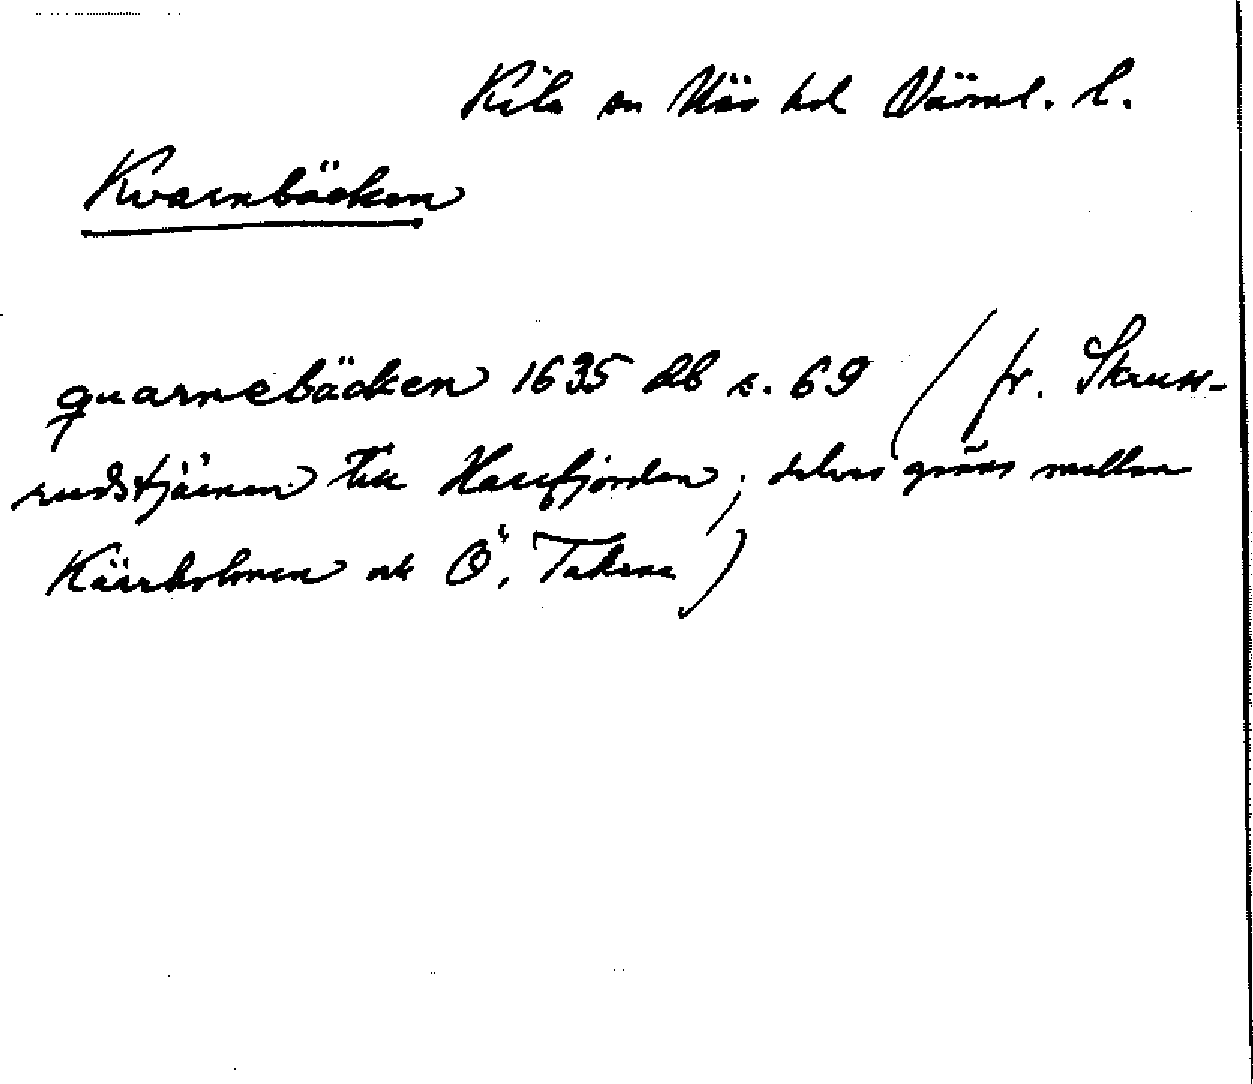 Kila sn Näs hd Värml. l.
Kvarnbäcken
quarnebäcken 1635 db s. 69 (fr. Skruvs-
rudstjärnen till Harefjorden; delvis gräns mellan
Kärrholmen och Ö. Takene)